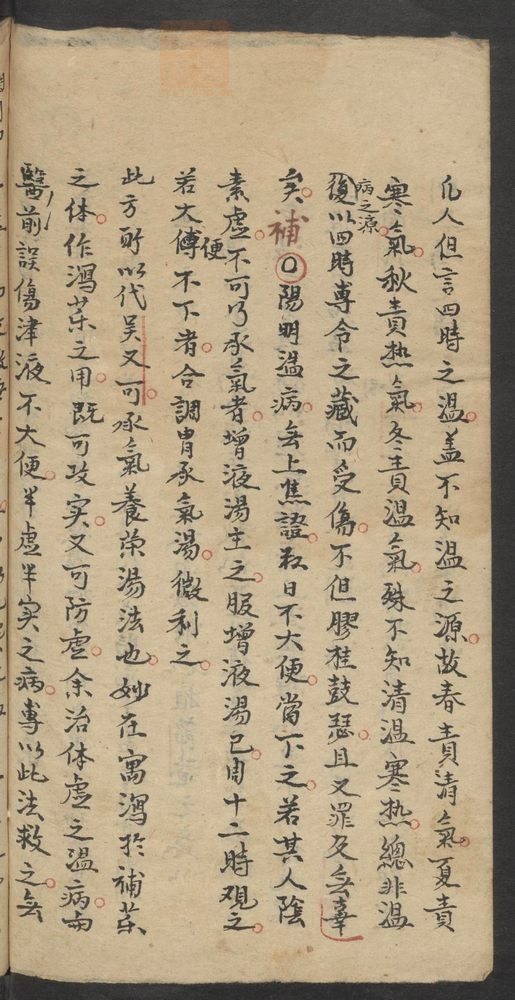 凡人但言四時之溫蓋不知溫之源故春責清氣夏責
寒氣秋責熱氣冬責溫氣殊不知清溫寒熱總非溫
病之源
復以四時專令之藏而受傷不但膠柱鼓瑟且又罪及無辜
矣補〇陽明溫病無上焦證数日不大便當下之若其人陰
素虛不可乃承氣者增液湯主之服增液湯已周十二時观之
若大便不下者合調胃承氣湯微利之
此方所以代吴又可承氣養荣湯法也妙在寓瀉於補葯
之体作瀉葯之用既可攻实又可防虛余治体虛之溫病与
醫前誤傷津液不大便半虛半实之病專以此法救之無